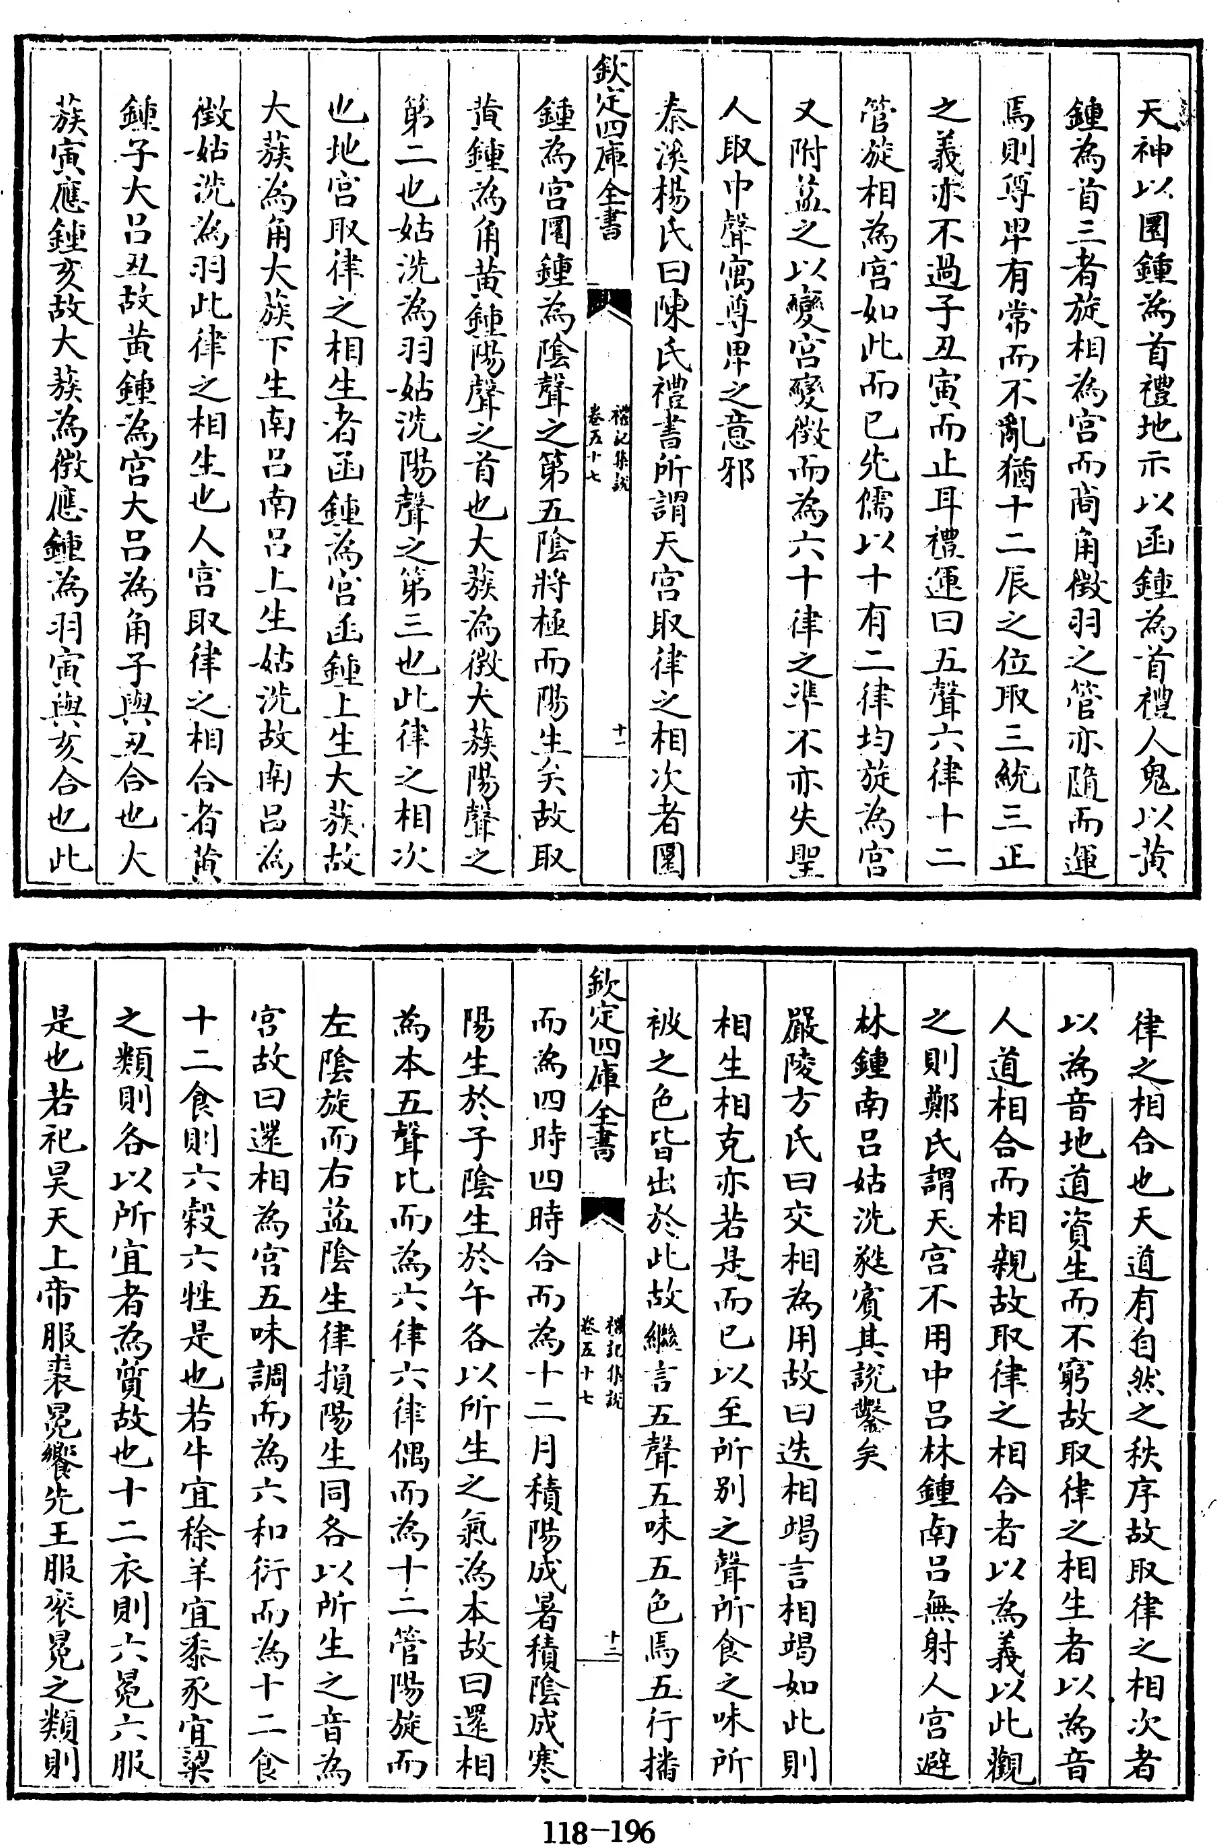 天神以圜鍾為首禮地示以函鍾為首禮人鬼以黃
鍾為首三者旋相為宮而商角徵羽之管亦隨而運
焉則尊卑有常而不亂猶十二辰之位取三統三正
之義亦不過子丑寅而止耳禮運曰五聲六律十二
管旋相為宮如此而已先儒以十有二律均旋為宮
又附益之以變宮變徵而為六十律之準不亦失聖
人取中聲寓尊卑之意邪
秦溪楊氏曰陳氏禮書所謂天宮取律之相次者圜
欽定四庫全書
禮記集說
卷五十七
十一
鍾為宮圜鍾為陰聲之第五陰將極而陽生矣故取
黃鍾為角黃鍾陽聲之首也大蔟為徵大蔟陽聲之
第二也姑洗為羽姑洗陽聲之第三也此律之相次
也地宮取律之相生者函鍾為宮函鍾上生大蔟故
大蔟為角大蔟下生南呂南呂上生姑洗故南呂為
徵姑洗為羽此律之相生也人宮取律之相合者黃
鍾子大呂丑故黃鍾為宮大呂為角子與丑合也大
蔟寅應鍾亥故大蔟為徵應鍾為羽寅與亥合也此
律之相合也天道有自然之秩序故取律之相次者
以為音地道資生而不窮故取律之相生者以為音
人道相合而相親故取律之相合者以為義以此觀
之則鄭氏謂天宮不用中呂林鍾南呂無射人宮避
林鍾南呂姑洗蕤賓其說鑿矣
嚴陵方氏曰交相為用故曰迭相竭言相竭如此則
相生相克亦若是而已以至所別之聲所食之味所
被之色皆出於此故繼言五聲五味五色焉五行播
欽定四庫全書
禮記集說
卷五十七
十二
而為四時四時合而為十二月積陽成暑積陰成寒
陽生於子陰生於午各以所生之氣為本故曰還相
為本五聲比而為六律六律偶而為十二管陽旋而
左陰旋而右益陰生律損陽生同各以所生之音為
宮故曰還相為宮五味調而為六和衍而為十二食
十二食則六穀六牲是也若牛宜稌羊宜黍豕宜粱
之類則各以所宜者為質故也十二衣則六冕六服
是也若祀昊天上帝服裘冕饗先王服袞冕之類則
118-196